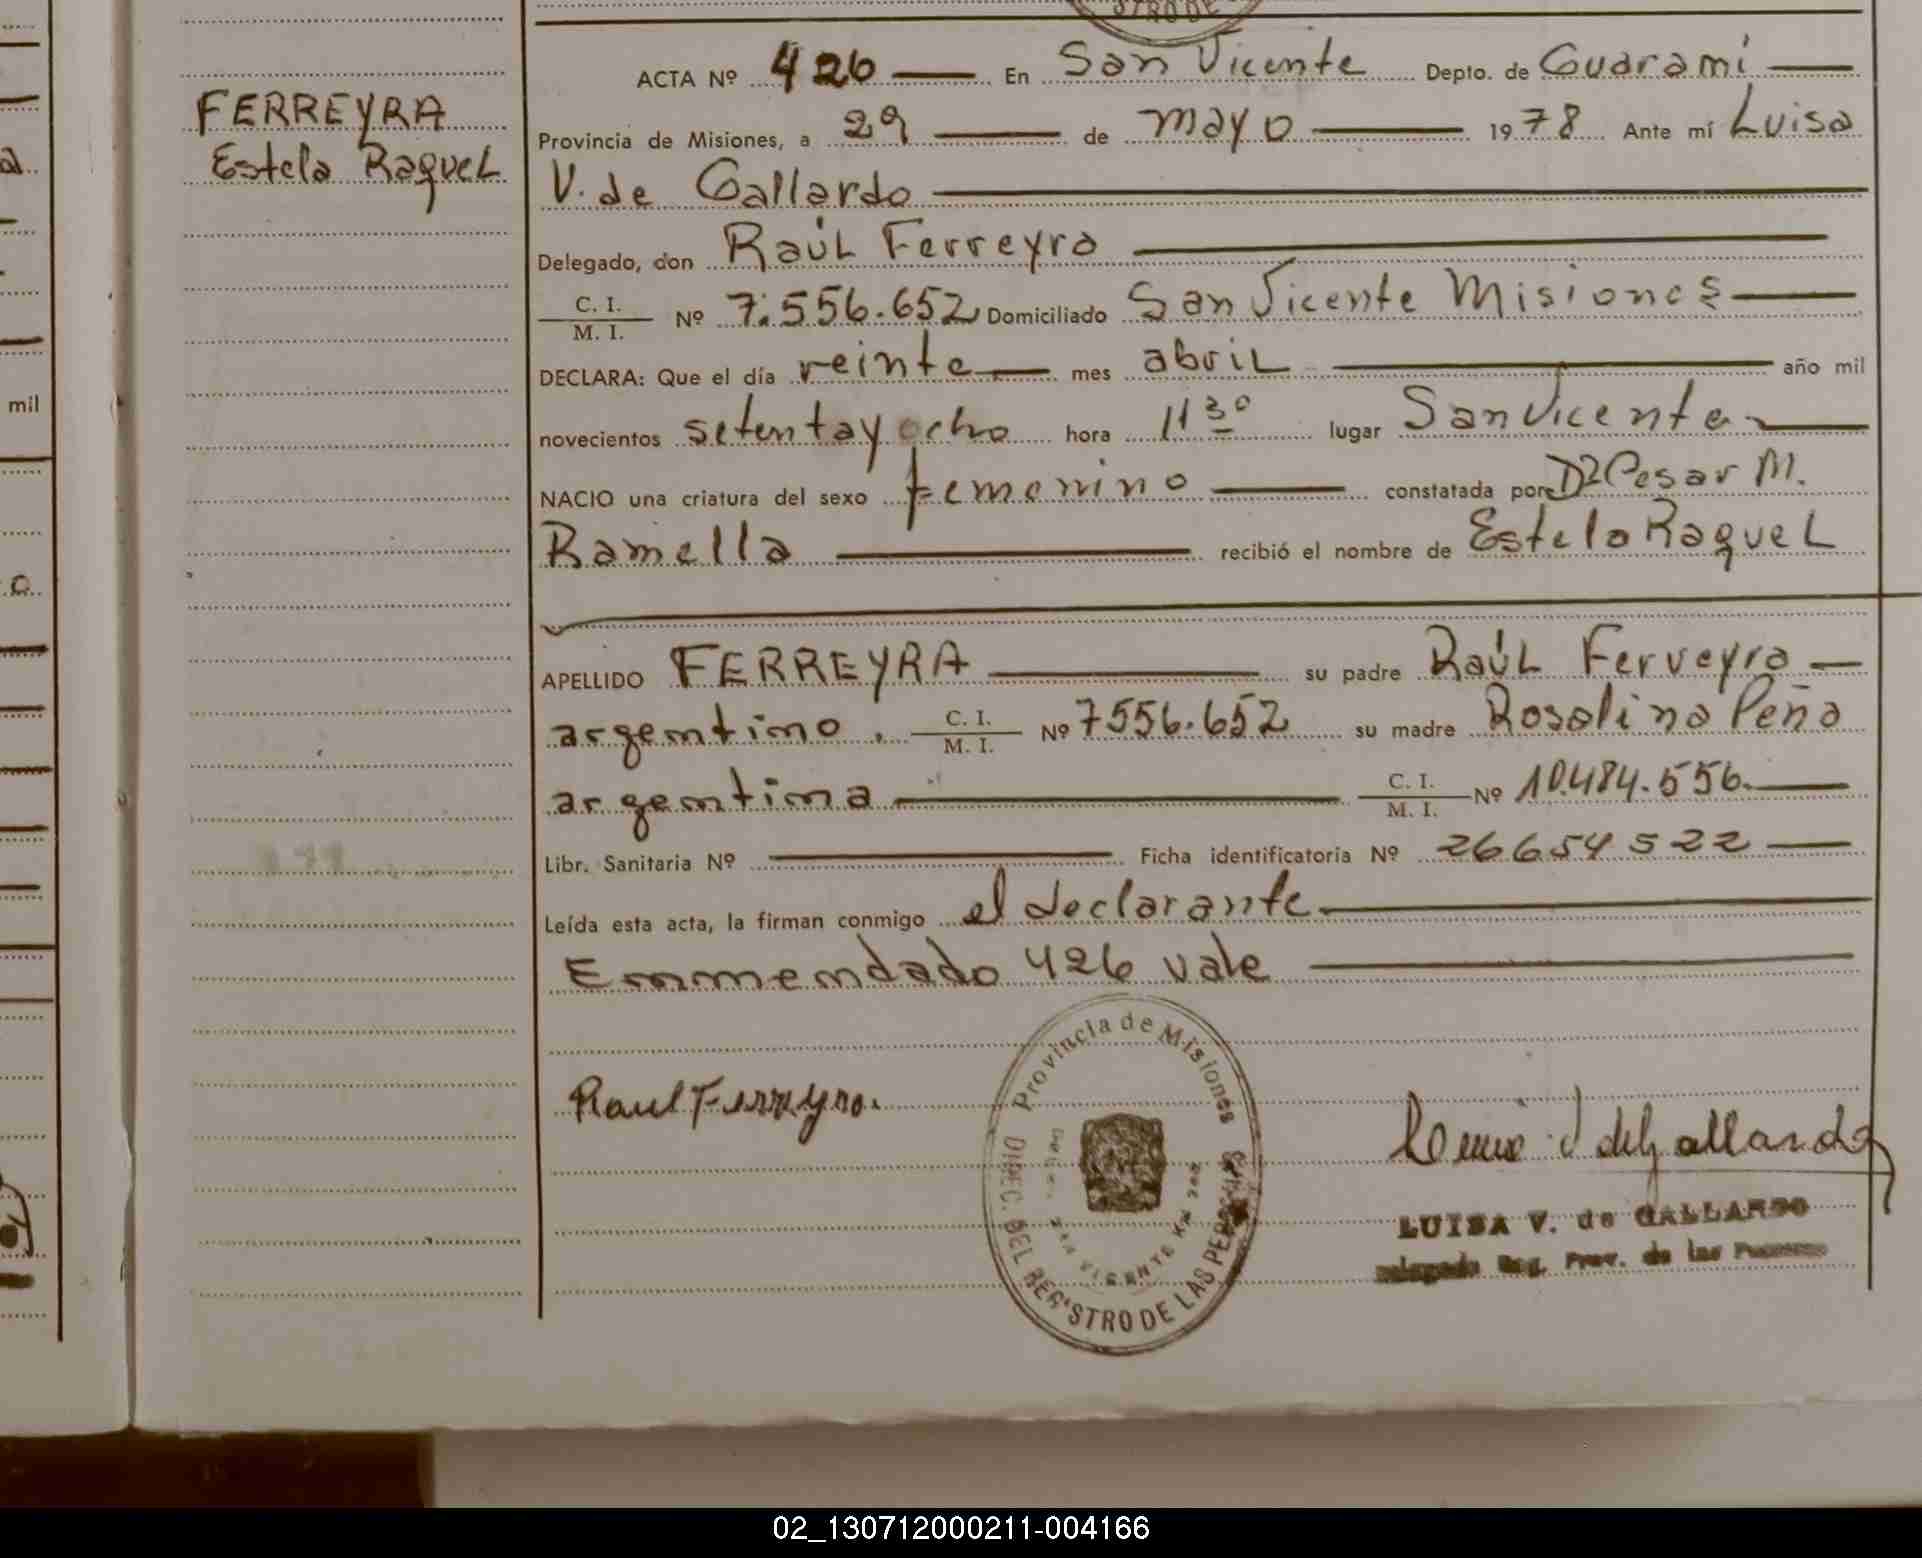 STRO DE
ACTA Nº 426 En San Vicente Depto. de Guarami
FERREYRA
Estela Raquel
Provincia de Misiones, a 29 de mayo 1978 Ante mí Luisa
V. de Gallardo
Delegado, don Raúl Ferreyra
C. I.
M. I.
Nº 7.556.652 Domiciliado San Vicente Misiones
DECLARA: Que el día veinte mes abril año mil
novecientos setenta y ocho hora 11 30 lugar San Vicente
NACIO una criatura del sexo femenino constatada por Dr Cesar M.
Ramella recibió el nombre de Estela Raquel
APELLIDO FERREYRA su padre Raúl Ferreyra
argentino. C. I.
M. I. Nº 7556.652 su madre Rosalina Peña
argentina C. I.
M. I. Nº 10.484.556.
Libr. Sanitaria Nº Ficha identificatoria Nº 26654522
Leída esta acta, la firman conmigo el declarante
Emmendado 426 vale
Raul Ferreyra.
Provincia de Misiones
DIREC. DEL REGISTRO DE LAS PERSONAS
SAN VICENTE
LUISA V. de GALLARDO
Delegado Reg. Prov. de las Personas
mil
02_130712000211-004166